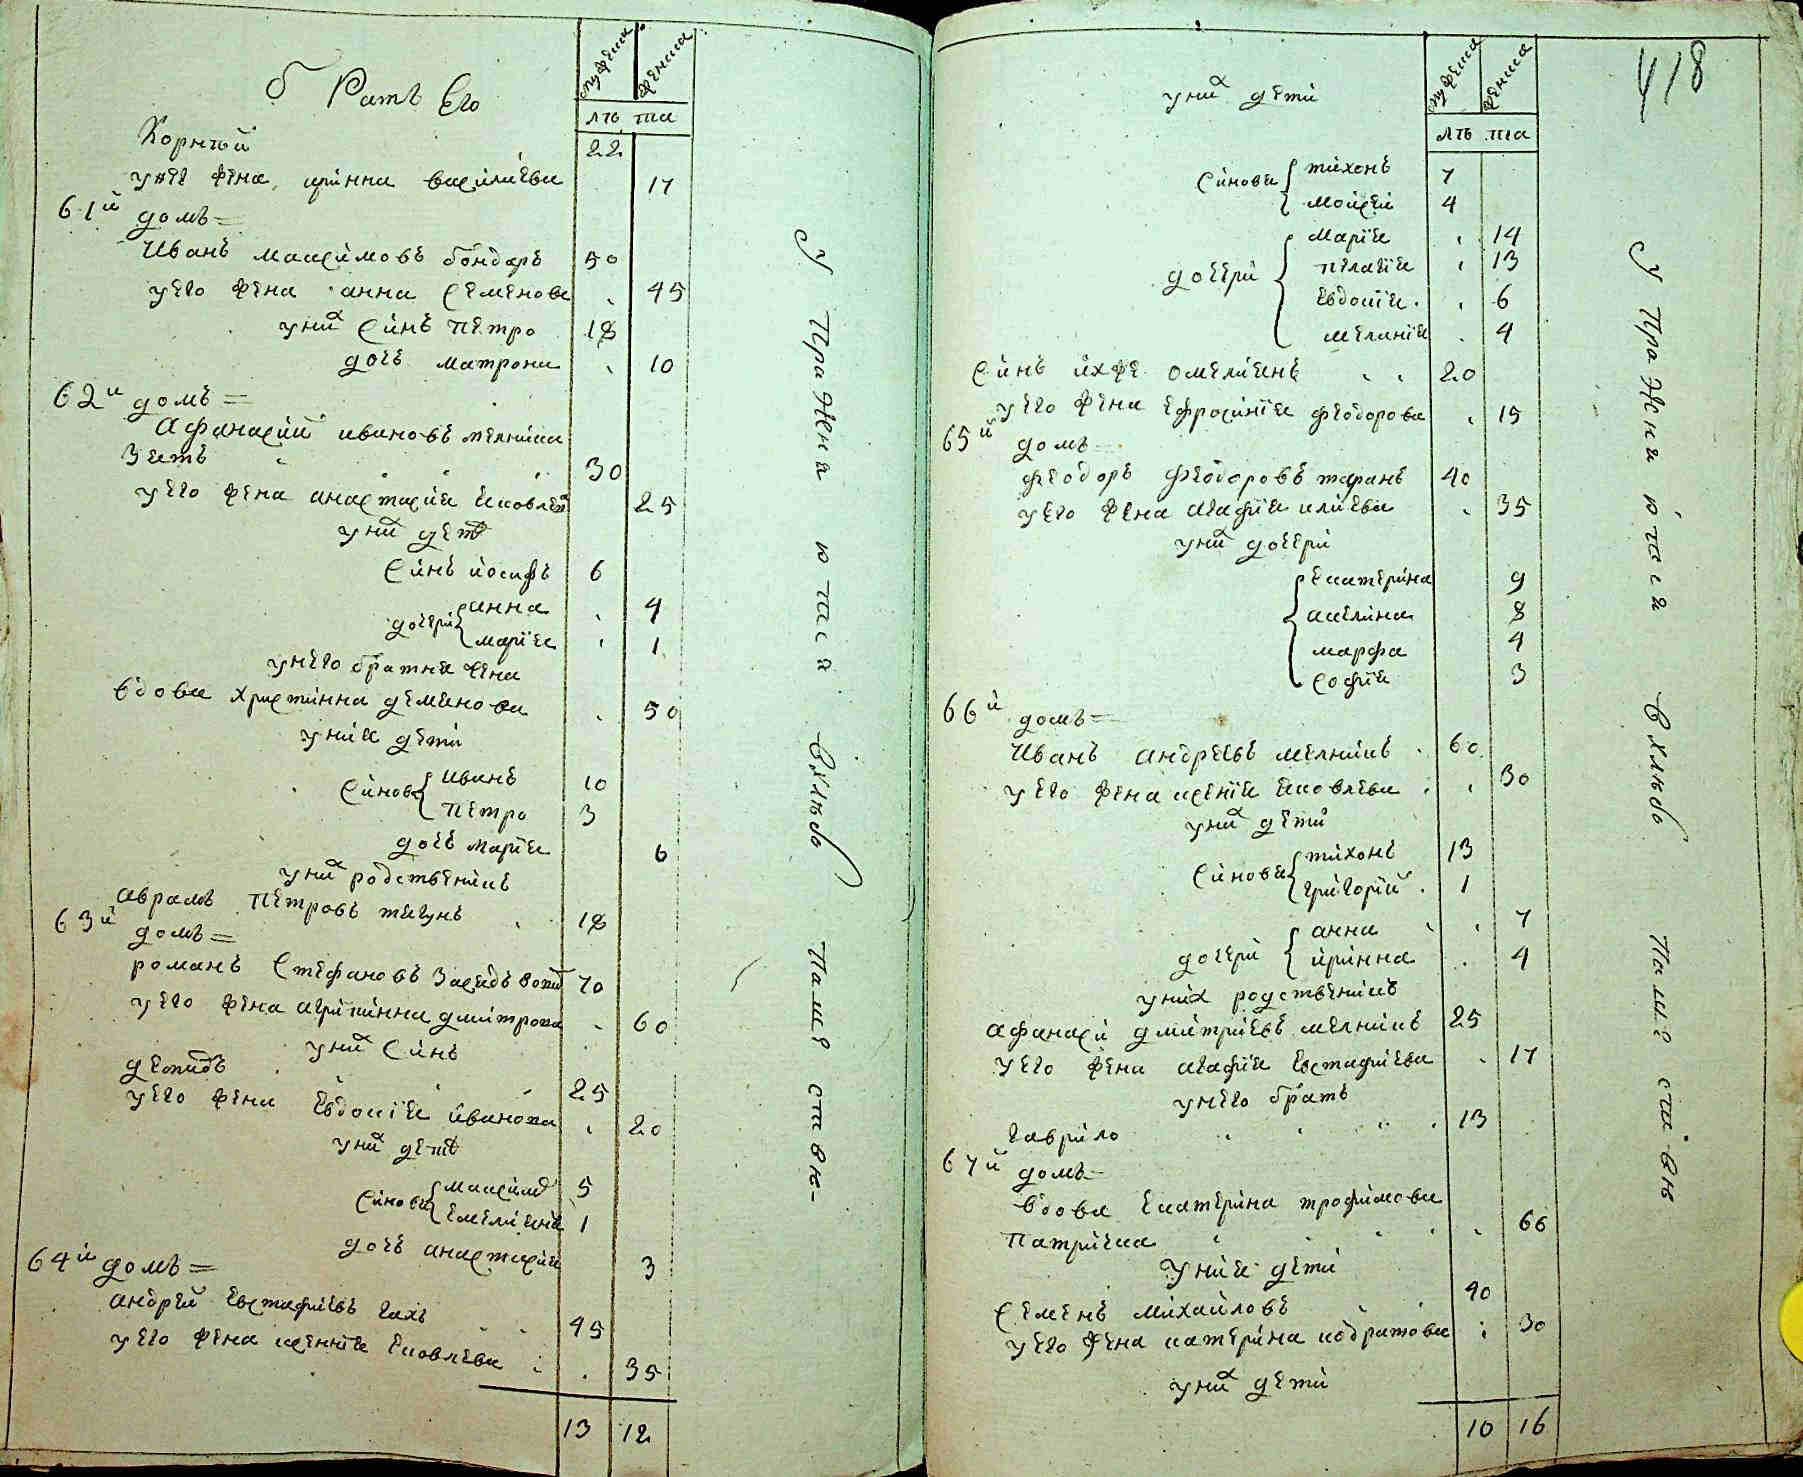 мужеска
женска
лѣта
братъ Его
Корнѣй 22
у нег жена иринна василиева 17
61й домъ =
Иванъ максимовъ бондарь 50
у его жена анна Семенова 45
у них синъ петро 18
дочь матрона 10
62й домъ =
Афанасий ивановъ мелника
Зеть 30
у его жена анастасия Яковлев 25
у них дети
синъ иосифъ 6
дочери анна 4
мария 1
у него братня жена
вдова христинна деминова 50
у ния дети
синов иванъ 10
петро 3
дочь мария 6
у них родственикъ
аврамъ петровъ тягунъ 18
63й домъ =
романъ Стефановъ 70
у его жена агрипинна дмитрова 60
у них синъ
демидъ 25
у его жена Евдокия иванова 20
у них дети
синови максимъ 5
Емелиянъ 1
дочь анастасия 3
64й домъ =
андрей Евстафиевъ гахъ 45
у его жена ксения Яковлева 35
13 12
У Пражена ютаса вхлѣбо Памѣ ставю-
418
мужеска
женска
лѣта
у них дети
синови тихонъ 7
мойсей 4
дочери мария 14
пелагия 13
Евдокия 6
мелания 4
синъ ихже омелиянъ 20
у его жена Ефросиния феодорова 15
65й домъ
феодоръ феодоровъ таранъ 40
у его жена агафия илиева 35
у них дочери
Екатерина 9
акелина 8
марфа 4
софия 3
66й домъ =
Иванъ андреевъ мелникъ 60
у его жена ксения Яковлева 30
у них дети
синови тихонъ 13
григорий 1
дочери анна 7
иринна 4
у них родственикъ
афанаси дмитриевъ мелникъ 25
у его жена агафия Евстафиева 17
у него братъ
гаврило 13
67й домъ =
вдова Екатерина трофимова
патрика 66
у ния дети
семенъ михайловъ 40
у его жена катерина кодратова 30
у них дети
10 16